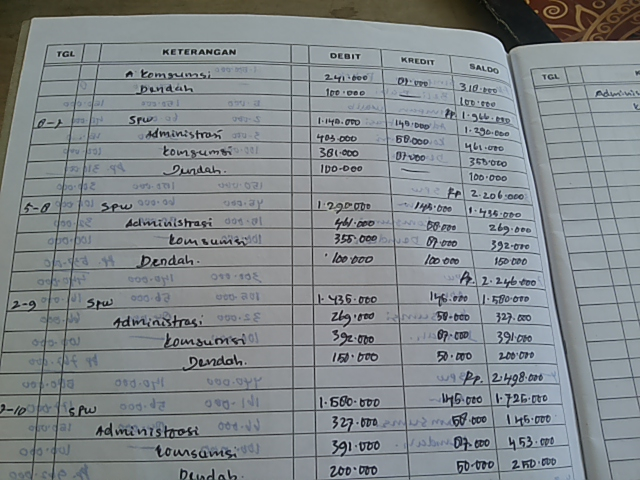 TGL KETERANGAN DEBIT KREDIT SALDO
A komsumsi 241.000 87.000 310.000
Dendah 100.000 — 100.000
Rp 1.966.000
8-7 SPW 1.140.000 145.000 1.290.000
Administrasi 403.000 58.000 461.000
komsumsi 381.000 87.000 355.000
Dendah. 100.000 — 100.000
Rp 2.206.000
5-8 SPW 1.290.000 145.000 1.435.000
Administrasi 461.000 58.000 269.000
komsumsi 355.000 87.000 392.000
Dendah. 100.000 100.000 150.000
Rp. 2.246.000
2-9 SPW 1.435.000 145.000 1.580.000
Administrasi 269.000 58.000 327.000
komsumsi 392.000 87.000 391.000
Dendah. 150.000 50.000 200.000
Rp. 2.498.000
-10 SPW 1.580.000 145.000 1.725.000
Administrasi 327.000 58.000 145.000
komsumsi 391.000 87.000 453.000
Dendah. 200.000 50.000 250.000
TGL